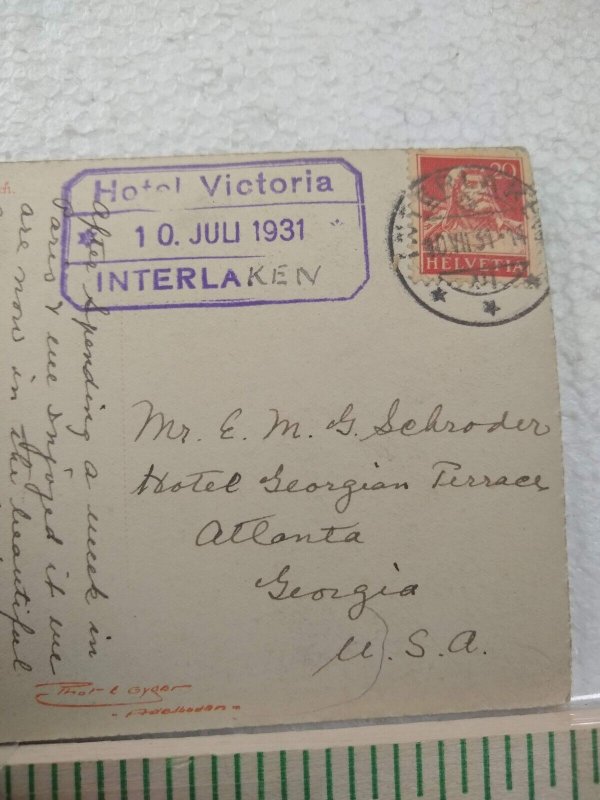 ch.
Hotel Victoria
10. JULI 1931
INTERLAKEN
20
HELVETIA
INTERLAKEN
10.VII.31
After spending a week in
Paris & we enjoyed it we
are now in the beautiful
Mr. E. M. G. Schroder
Hotel Georgian Terrace
Atlanta
Georgia
U. S. A.
Phot E Gyger
Adelboden